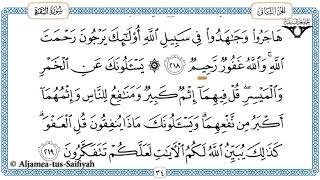 الجزء الثاني
سورة البقرة
هَاجَرُواْ وَجَٰهَدُواْ فِي سَبِيلِ ٱللَّهِ أُوْلَٰٓئِكَ يَرۡجُونَ رَحۡمَتَ
ٱللَّهِۚ وَٱللَّهُ غَفُورٞ رَّحِيمٞ ٢١٨ ۞ يَسۡـَٔلُونَكَ عَنِ ٱلۡخَمۡرِ
وَٱلۡمَيۡسِرِۖ قُلۡ فِيهِمَآ إِثۡمٞ كَبِيرٞ وَمَنَٰفِعُ لِلنَّاسِ وَإِثۡمُهُمَآ
أَكۡبَرُ مِن نَّفۡعِهِمَاۗ وَيَسۡـَٔلُونَكَ مَاذَا يُنفِقُونَۖ قُلِ ٱلۡعَفۡوَۗ
كَذَٰلِكَ يُبَيِّنُ ٱللَّهُ لَكُمُ ٱلۡأٓيَٰتِ لَعَلَّكُمۡ تَتَفَكَّرُونَ ٢١٩
© Aljamea-tus-Saifiyah
٣٤